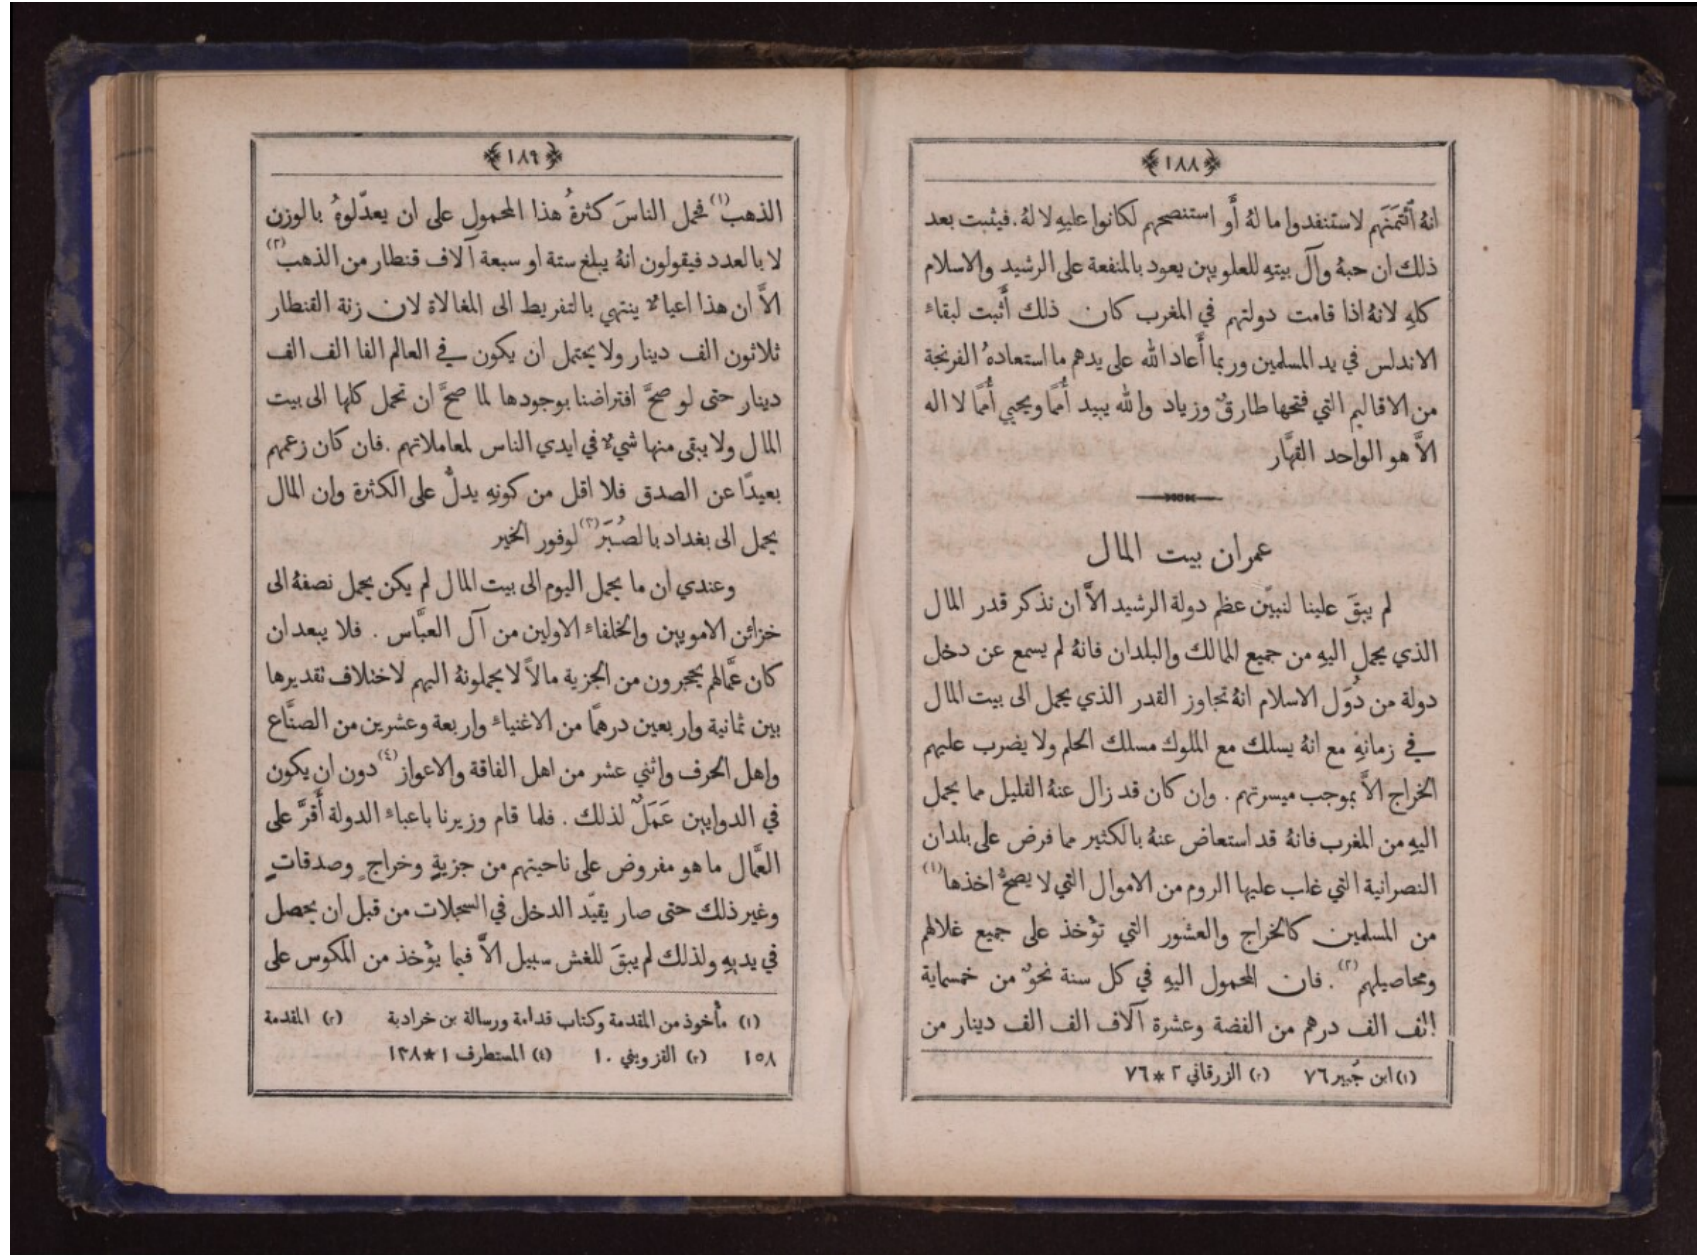 ﴿١٨٨﴾
انهُ ٱئتَمَنَهم لاستنفدوا ما لهُ أَو استنصحهم لكانوا عليهِ لا لهُ. فيثبت بعد
ذلك ان حبهُ وآل بيتهِ للعلويين يعود بالمنفعة على الرشيد والاسلام
كلهِ لانهُ اذا قامت دولتهم في المغرب كان ذلك أَثبت لبقاء
الاندلس في يد المسلمين وربما أَعاد الله على يدهم ما استعادهُ الفرنجة
من الاقاليم التي فتحها طارقٌ وزياد والله يبيد أُممًا ويحيي أُممًا لا اله
الاَّ هو الواحد القهَّار
عمران بيت المال
لم يبقَ علينا لنبيّن عظم دولة الرشيد الاَّ ان نذكر قدر المال
الذي يحمل اليهِ من جميع الممالك والبلدان فانهُ لم يسمع عن دخل
دولة من دُوَل الاسلام انهُ تجاوز القدر الذي يحمل الى بيت المال
في زمانهِ مع انهُ يسلك مع الملوك مسلك الحلم ولا يضرب عليهم
الخراج الاَّ بموجب ميسرتهم. وان كان قد زال عنهُ القليل مما يحمل
اليهِ من المغرب فانهُ قد استعاض عنهُ بالكثير مما فرض على بلدان
النصرانية التي غاب عليها الروم من الاموال التي لا يصحُّ اخذها(١)
من المسلمين كالخراج والعشور التي تؤخذ على جميع غلالهم
ومحاصيلهم(٢). فان المحمول اليهِ في كل سنة نحوٌ من خمسماية
الف الف درهم من الفضة وعشرة آلاف الف الف دينار من
(١) ابن جُبير ٧٦ (٢) الزرقاني ٢*٧٦
﴿١٨٩﴾
الذهب(١) فحمل الناسَ كثرةُ هذا المحمول على ان يعدّلوهُ بالوزن
لا بالعدد فيقولون انهُ يبلغ ستة او سبعة آلاف قنطار من الذهب(٢)
الاَّ ان هذا اعيالا ينتهي بالتفريط الى المغالاة لان زنة القنطار
ثلاثون الف دينار ولا يحتمل ان يكون في العالم الفا الف الف
دينار حتى لو صحَّ افتراضنا بوجودها لما صحَّ ان تحمل كلها الى بيت
المال ولا يبقى منها شيءٌ في ايدي الناس لمعاملاتهم. فان كان زعمهم
بعيدًا عن الصدق فلا اقل من كونهِ يدلُّ على الكثرة وان المال
يحمل الى بغداد بالصُبَر(٣) لوفور الخير
وعندي ان ما يحمل اليوم الى بيت المال لم يكن يحمل نصفهُ الى
خزائن الامويين والخلفاء الاولين من آل العبَّاس. فلا يبعد ان
كان عمَّالهم يحجرون من الجزية مالاً لا يحملونهُ اليهم لاختلاف نقديرها
بين ثمانية واربعين درهمًا من الاغنياء واربعة وعشرين من الصنَّاع
واهل الحرف واثني عشر من اهل الفاقة والاعواز(٤) دون ان يكون
في الدوايين عَمَلٌ لذلك. فلما قام وزيرنا باعباء الدولة أَقرَّ على
العمَّال ما هو مفروض على ناحيتهم من جزيةٍ وخراجٍ وصدقاتٍ
وغير ذلك حتى صار يقيّد الدخل في السجلات من قبل ان يحصل
في يديهِ ولذلك لم يبقَ للغش سبيل الاَّ فيما يؤخذ من المكوس على
(١) مأخوذ من المقدمة وكتاب قدامة ورسالة بن خرادبة (٢) المقدمة
١٥٨ (٣) القزويني ١٠ (٤) المستطرف ١*١٣٨